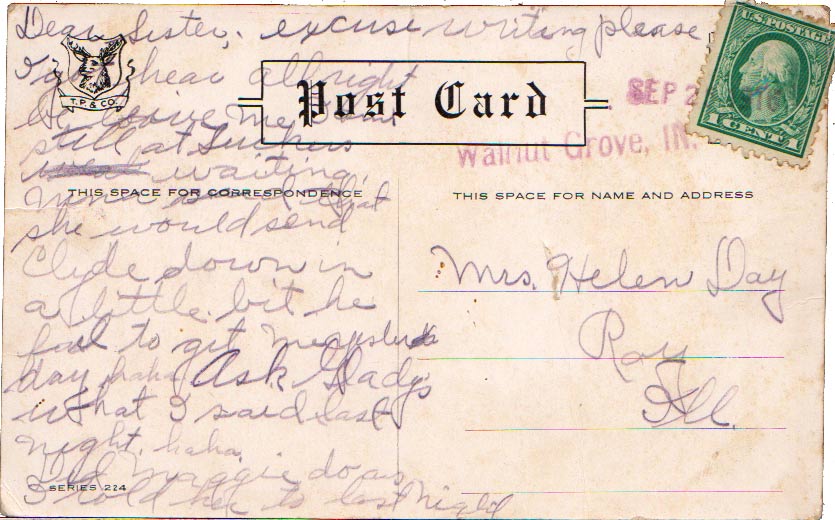 Dear Sister, excuse writing please
hear allright
T.P. & CO.
Post Card
be
still at
SEP 2
Walnut Grove, IN.
U.S. POSTAGE
1 CENT 1
waiting.
THIS SPACE FOR CORRESPONDENCE
THIS SPACE FOR NAME AND ADDRESS
that
she would send
Clyde down in
a little bit he
fail to get
day haha Ask Gladys
what I said last
night, haha.
Did Maggie do as
I told her to last night
SERIES 224
Mrs. Helen Day
Ray
Ill.